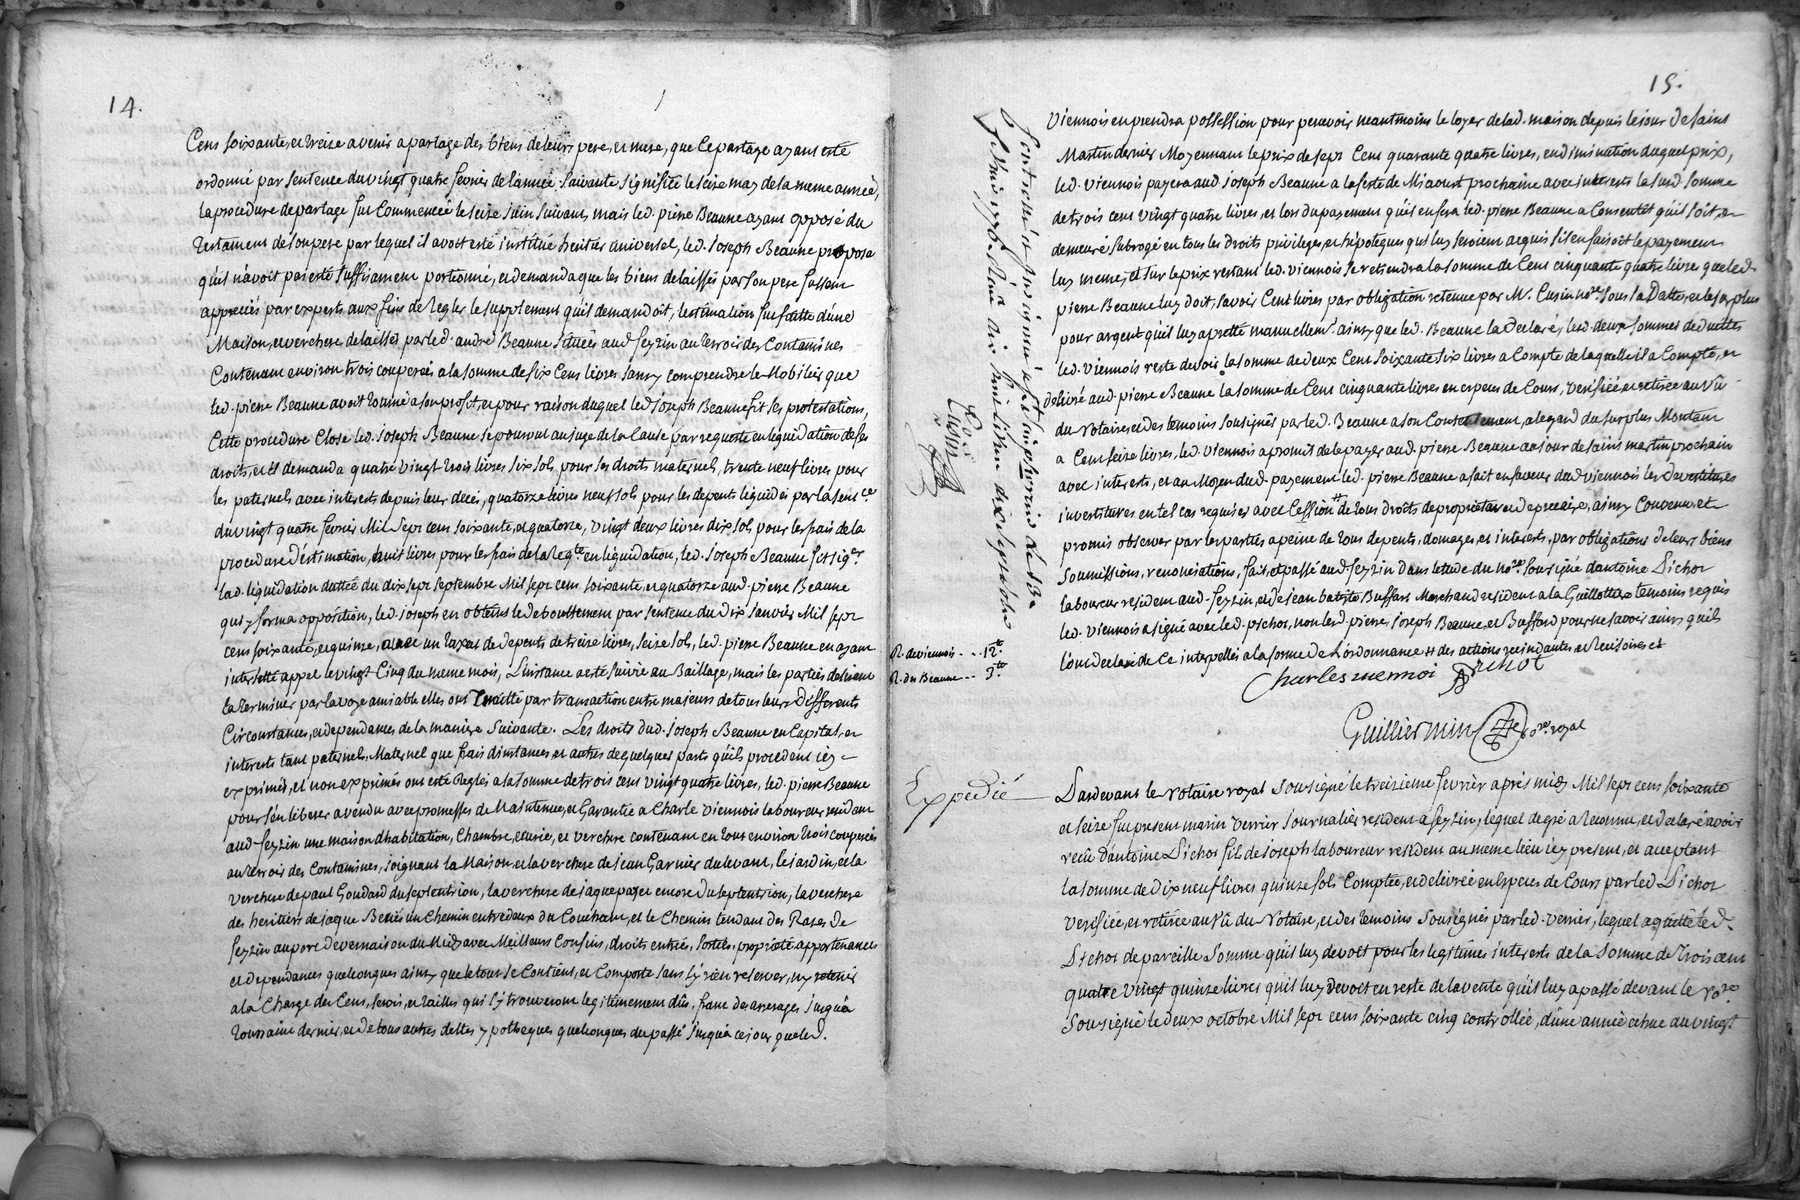 14.
Cens soixante, et treize a venir a partage des biens de leurs pere, et mere, que le partage ayant esté
ordonné par sentence du vingt quatre fevrier de l'année suivante signifiée le seize may de la meme année,
la procedure de partage fut commencée le seize juin suivant, mais led. pierre Beaune ayant opposé du
testament de son pere par lequel il avoit esté institué heritier universel, led. joseph Beaune proposa
qu'il n'avoit pas esté suffisament portionné, et demanda que les biens delaissés par son pere fussent
appreciés par experts aux fins de regler le supplement qu'il demandoit, l'estimation fut faitte d'une
Maison, et verchere delaissés par led. andré Beaune situées aud. feyzin au terroir des Contamines
Contenant environ trois couperées a la somme de six Cens livres sans y comprendre le Mobilier que
led. pierre Beaune avoit tourné a son profit, et pour raison duquel led. joseph Beaune fit ses protestations,
Cette procedure Close led. joseph Beaune se pourvut au juge de la Cause par requeste en liquidation de ses
droits, et il demanda quatre vingt trois livres six sols, pour ses droits maternels, trente neuf livres, pour
les paternels avec interests depuis leur deces, quatorze livres neuf sols pour les depents liquidés par la sent.ce
du vingt quatre fevrier Mil sept cens soixante, et quatorze, vingt deux livres dix sols pour les frais de la
procedure d'estimation, huit livres pour les frais de la Reqte en liquidation, led. joseph Beaune fit sig.er
lad. liquidation dattée du dix sept septembre Mil sept cens soixante, et quatorze aud. pierre Beaune
qui y forma opposition, led. joseph en obtint le deboutement par sentence du dix janvier Mil sept
cens soixante, et quinze, avec un taxat de depents de treize livres, seize sols, led. pierre Beaune en ayant
interjetté appel le vingt Cinq du meme mois, l'instance a esté suivie au Baillage, mais les parties desirant
la terminer par la voye amiable elles ont traitté par transaction entre majeurs de tous leurs differents
Circonstances, et dependances de la maniere suivante. Les droits dud. joseph Beaune en Capital, et
interests tant paternels, Maternel que frais d'instances et autres de quelques parts qu'ils procedent icy
exprimés, et non exprimés ont esté reglés a la somme de trois cens vingt quatre livres, led. pierre Beaune
pour s'en liberer a vendu avec promesses de Maintenue, et Garantie a Charle Viennois laboureur resident
aud. feyzin une maison d'habitation, Chambre, ecurie, et verchere contenant en tout environ trois couperées
au terroir des Contamines, joignant la Maison et la verchere de jean Garnier du levant, le jardin, et la
verchere de paul Goudard du septentrion, la verchere de jaque payer encore du septentrion, la verchere
des heritiers de jaque un Chemin entredeux du Couchant, et le Chemin tendant des Razes de
feyzin au port de vernaison du Midy avec Meilleurs Confins, droits entrées, sorties, proprieté appartenances
et dependances quelconques ainsy que le tout se Contient, et Comporte sans s'y rien reserver, ny retenir
a la Charge des Cens, servis, et tailles qui s'y trouveront legitimement dûs, franc de arrerages jusqu'a
Toussaint dernier, et de tous autres dettes ypotheques quelconques du passé jusqu'a ce jour que led.
15.
Viennois en prendra possession pour percevoir neantmoins le loyer de lad. maison depuis le jour de saint
Martin dernier Moyennant le prix de sept Cens quarante quatre livres, en diminution duquel prix,
led. Viennois payera aud. joseph Beaune a la feste de Miaoust prochaine avec interests la susd. somme
de trois cens vingt quatre livres, et lors du payement qu'il en fera led. pierre Beaune a Consentit qu'il soit, et
demeuré subrogé en tous les droits privilege, et hipoteques qui luy seroient acquis s'il en faisoit le payement
luy meme, et sur le prix restant led. Viennois se retiendra la somme de Cens cinquante quatre livres que led.
pierre Beaune luy doit, savoir Cent livres par obligation retenue par Mr. Cusin nore. sous sa Datte, et le surplus
pour argent qu'il luy a pretté manuellemt. ainsy que led. Beaune la Declaré, lesd. deux sommes deduittes
led. Viennois reste devoir la somme de deux Cens soixante six livres a Compte de laquelle il a Compté, et
delivré aud. pierre Beaune la somme de Cens cinquante livres en especes de Cours, verifiée et retirée au Vû
du notaire, et des temoins sousignés par led. Beaune a son Contentement, a legard du surplus Montant
a Cens seize livres, led. Viennois a promit de le payer aud. pierre Beaune au jour de saint martin prochain
avec interests, et au Moyen dud. payement led. pierre Beaune a fait en faveur dud. Viennois les Devestitures
investitures en tel cas requises avec Cession # de tous droits de propriétés et de precaire, ainsy Convenu, et
promis observer par les parties a peine de tous depents, domages, et interests, par obligations de leurs biens
soumissions, renonciations, fait, et passé aud. feyzin dans letude du nore. sousigné d'antoine Pichot
laboureur resident aud. feyzin, et de jean batiste Buffard Marchand resident a la Guillottiere temoins requis
led. Viennois a signé avec led. pichot, non lesd. pierre, joseph Beaune, et Buffard pour ne savoir ainsy qu'ils
l'ont declaré de Ce interpellés a la forme de L'ordonnance # des actions rescindantes et Rescisoires et
Charles viennoi Pichot
Guilliermin nore. royal
Controllé, et insinué a st simphorien le 13e
fevrier 1776. Reçu
Cusin
R. de viennois - - - 12s
R. des Beaune - - - 3tt
Expedié
Pardevant le notaire royal sousigné le treizieme fevrier après midy Mil sept cens soixante
et seize fut present marin Verrier journalier resident a feyzin, lequel de gré a reconnu, et declaré avoir
recû d'antoine Pichot fils de joseph laboureur resident au meme lieu icy present, et acceptant
la somme de Dix neuf livres quinze sols Comptée, et delivrée en Especes de Cours par led. Pichot
verifiée, et retirée au Vû du notaire, et des temoins sousignés par led. verrier, lequel a quitté led.
Pichot de pareille somme qu'il luy devoit pour les legitimes interests de la somme de Trois cens
quatre vingt quinze livres qu'il luy devoit en reste de la vente qu'il luy a passé devant le nore.
sousigné le deux octobre Mil sept cens soixante cinq controllée, d'une année echue au vingt